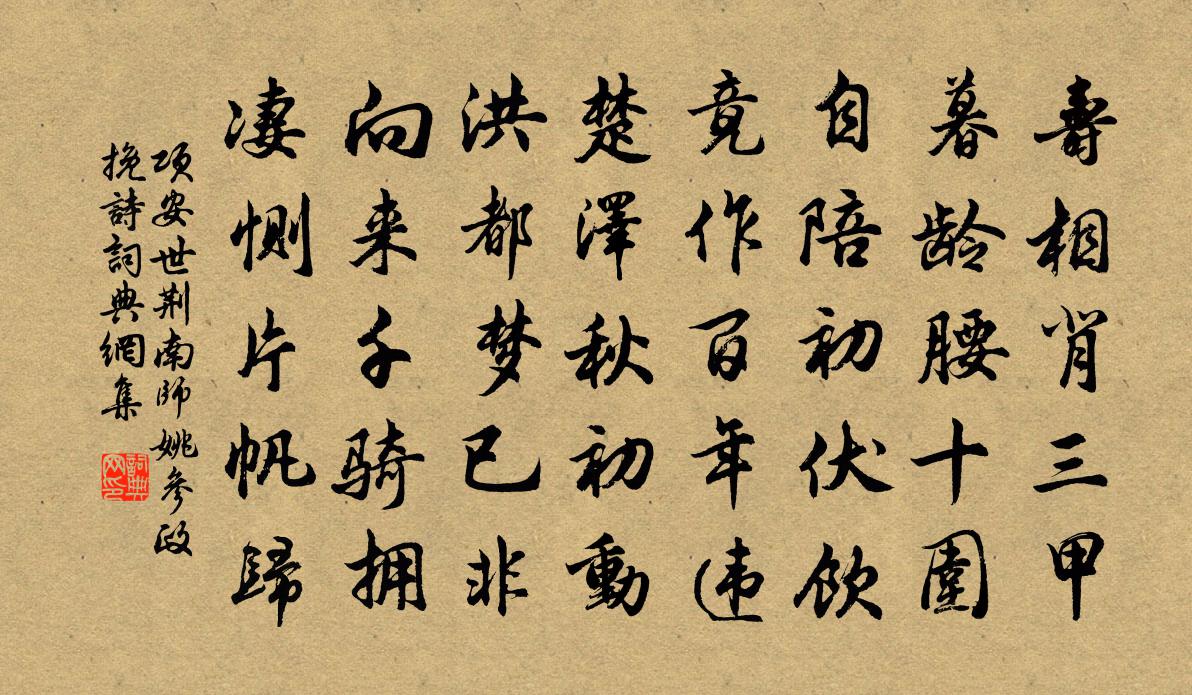 壽相肖三甲
暮龄腰十圍
自陪初伏飲
竟作百年违
楚澤秋初動
洪都梦已非
向来千骑拥
凄恻片帆歸
项安世荆南師姚參政
挽詩詞典網集
詞典
网印